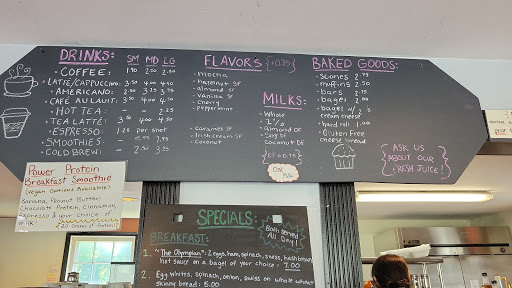 DRINKS: SM MD LG
• COFFEE: 1.90 2.50 2.90
• LATTE/CAPPUCCINO: 3.50 4.00 4.50
• AMERICANO: 2.50 3.25
• CAFÉ AU LAIT: 3.50 4.00 4.50
• HOT TEA: -
• TEA LATTE: 3.50 4.00 4.50
• ESPRESSO: 1.25 per shot
• SMOOTHIES -
• COLD BREW: - 2.50 3.25
FLAVORS {+0.75}
• mocha
• hazelnut SF
• almond SF
• vanilla SF
• cherry
• peppermint
• caramel SF
• Irish cream SF
• coconut
MILKS:
• Whole
• 2%
• almond DF
• Soy DF
• Coconut DF
{DF+0.75}
Oat Milk
BAKED GOODS:
• scones 2.75
• muffins 2.50
• bars 2.25
• bagel 2.00
• bagel w/ cream cheese
• hard roll 1.00
• Gluten Free cheese bread
ASK US
ABOUT OUR
FRESH JUICE!
Power Protein
Breakfast Smoothie
(Vegan Options Available)
Banana, Peanut Butter,
Chocolate Protein, Cinnamon,
Espresso & your choice of
milk! (20 Grams of Protein)
SPECIALS:
Both served All Day!
BREAKFAST:
1. "The Olympian": 2 eggs, ham, spinach, swiss, hashbrown,
hot sauce on a bagel of your choice: 7.00
2. Egg whites, spinach, onion, swiss on whole wheat
skinny bread: 5.00